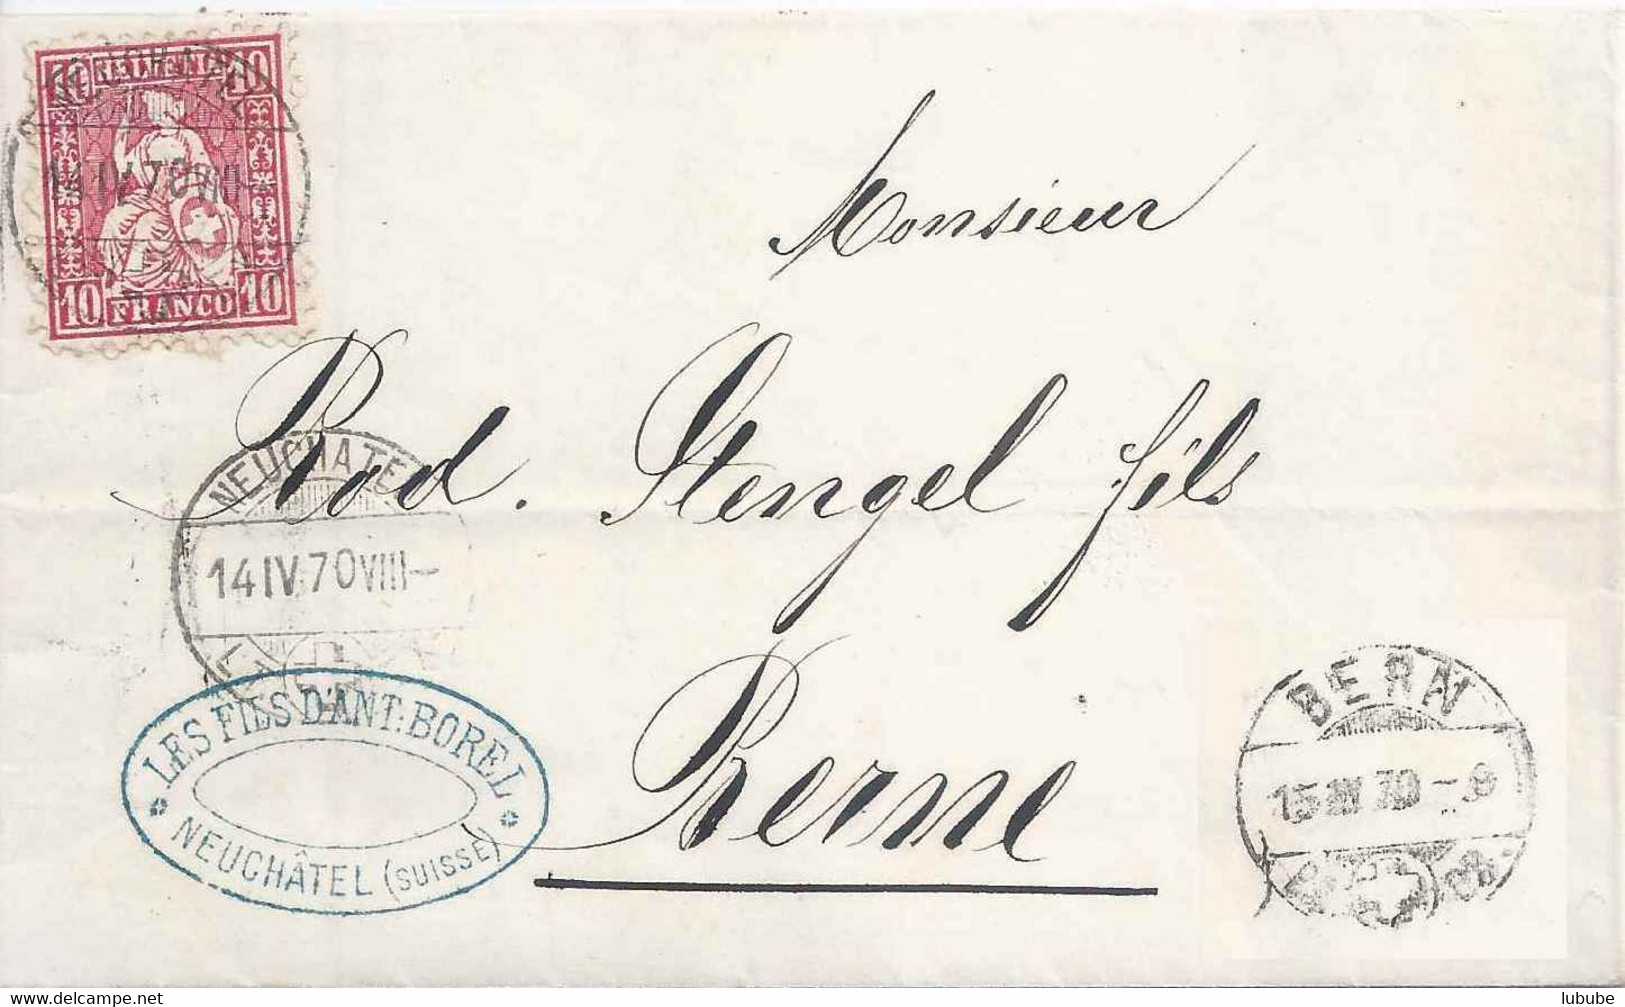 10 HELVETIA 10
NEUCHATEL
14 IV 70 VIII –
10 FRANCO 10
Monsieur
Rod. Stengel fils
Berne
NEUCHATEL
14 IV 70 VIII –
LES FILS D'ANT: BOREL
NEUCHÂTEL (SUISSE)
BERN
15 IV 70 – 9
Collection & Copyright : lubube